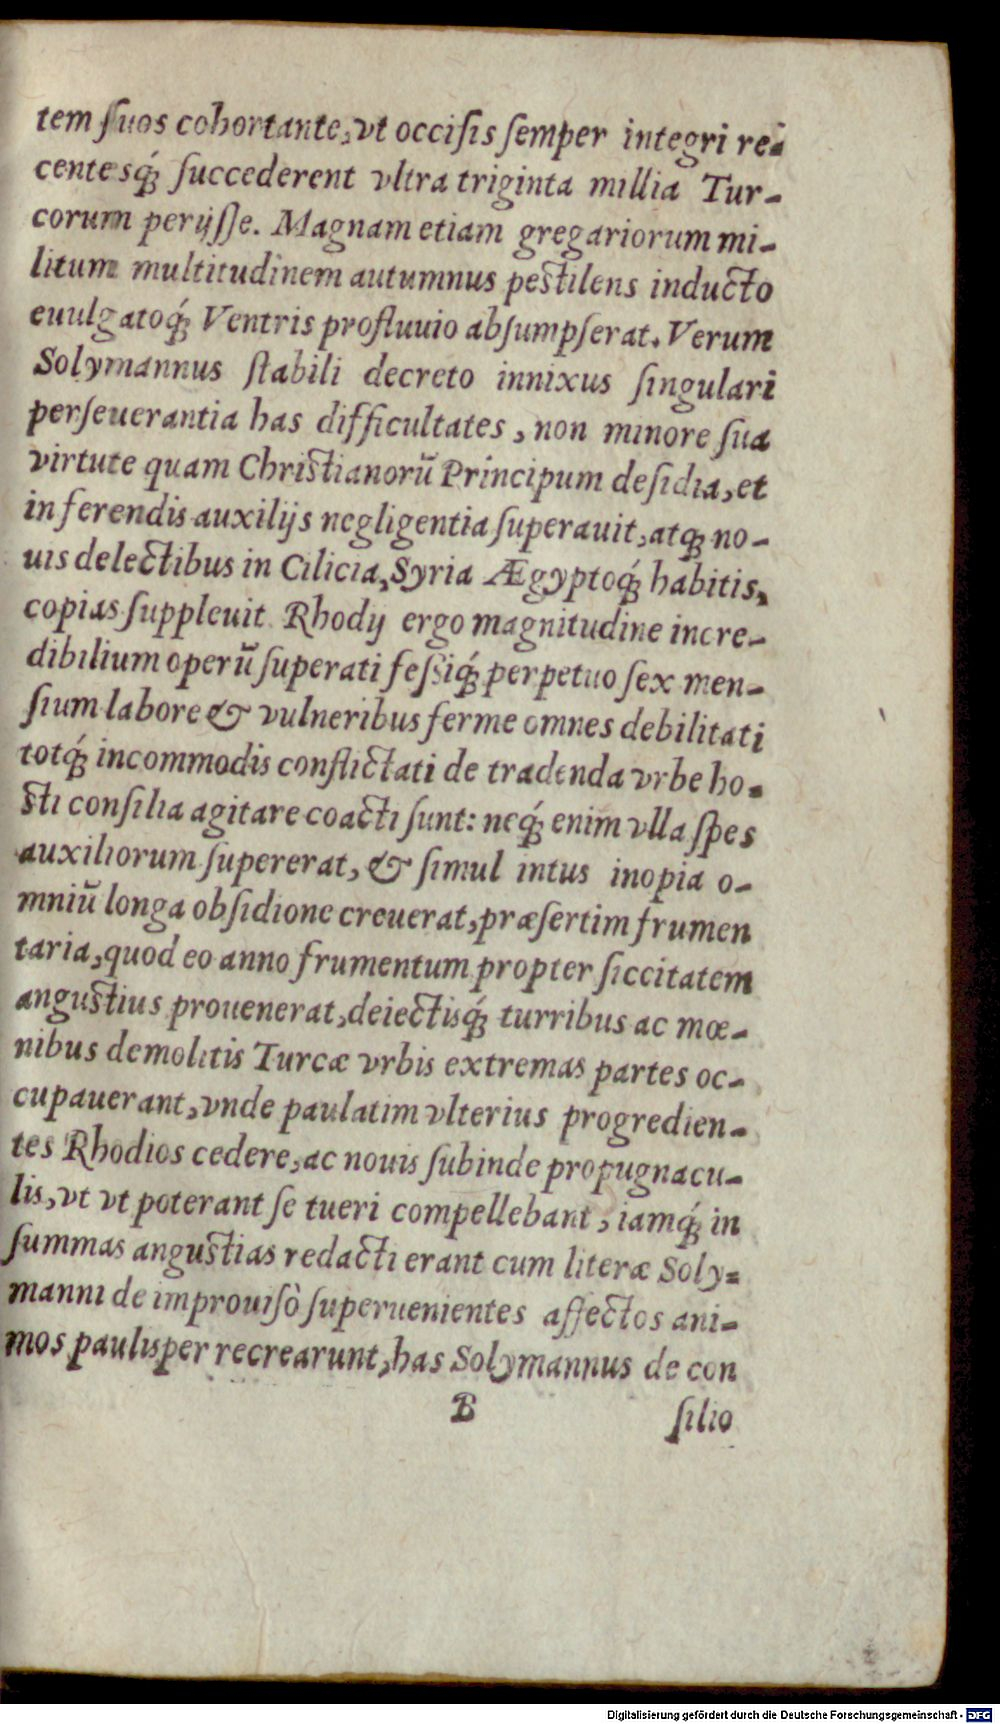 tem ſuos cohortante, vt occiſis ſemper integri re-
centesq́; ſuccederent vltra triginta millia Tur-
corum perijſſe. Magnam etiam gregariorum mi-
litum multitudinem autumnus peſtilens inducto
euulgatoq́; Ventris profluuio abſumpſerat. Verum
Solymannus ſtabili decreto innixus ſingulari
perſeuerantia has difficultates, non minore ſua
virtute quam Chriſtianorũ Principum deſidia, et
in ferendis auxilijs negligentia ſuperauit, atq; no-
uis delectibus in Cilicia, Syria Ægyptoq́; habitis,
copias ſuppleuit. Rhodij ergo magnitudine incre-
dibilium operũ ſuperati feſſiq́; perpetuo ſex men-
ſium labore & vulneribus ferme omnes debilitati
totq́; incommodis conflictati de tradenda vrbe ho-
ſti conſilia agitare coacti ſunt: neq́; enim vlla ſpes
auxiliorum ſupererat, & ſimul intus inopia o-
mniũ longa obſidione creuerat, præſertim frumen
taria, quod eo anno frumentum propter ſiccitatem
anguſtius prouenerat, deiectisq́; turribus ac mœ-
nibus demolitis Turcæ vrbis extremas partes oc-
cupauerant, vnde paulatim vlterius progredien-
tes Rhodios cedere, ac nouis ſubinde propugnacu-
lis, vt vt poterant ſe tueri compellebant, iamq́; in
ſummas anguſtias redacti erant cum literæ Soly-
manni de improuiſò ſuperuenientes affectos ani-
mos paulisper recrearunt, has Solymannus de con
B ſilio
Digitalisierung gefördert durch die Deutsche Forschungsgemeinschaft - DFG